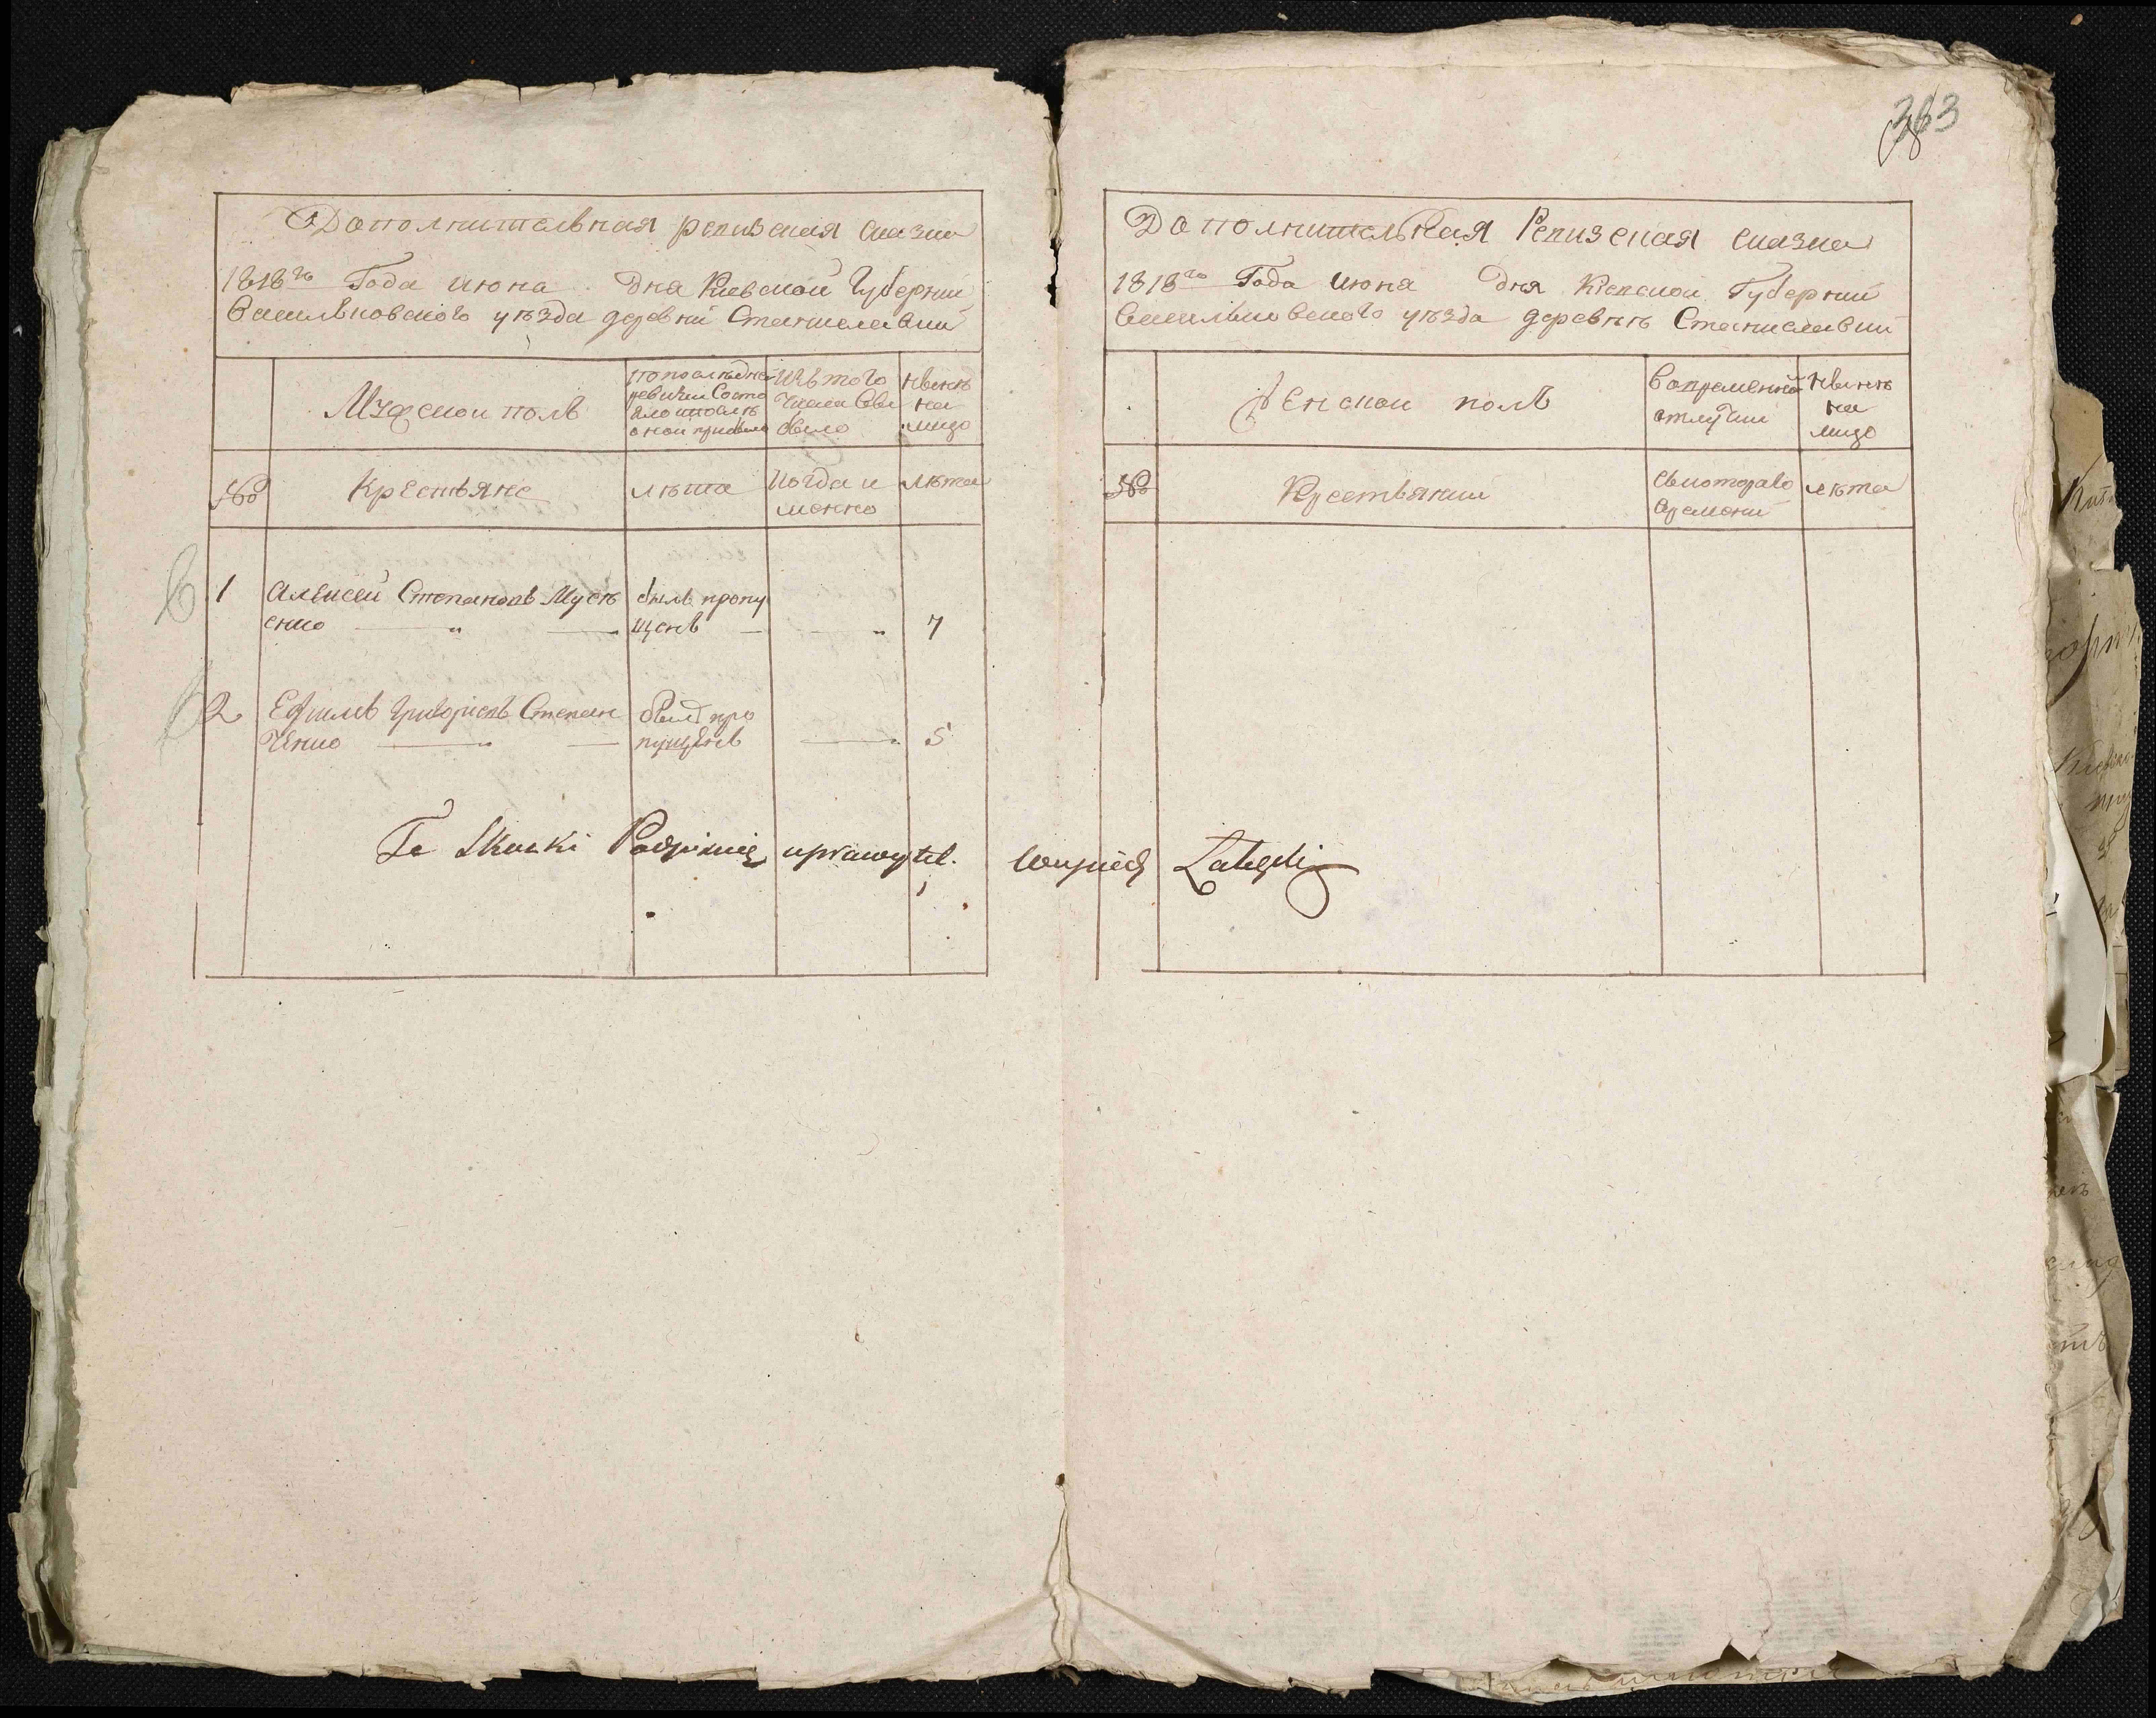 Дополнительная ревизская сказка
1818го Года июня дня Киевской Губернии
Васильковского уѣзда деревни Станиславки
Мужской полъ
по последней
ревизии состо
яло и послѣ
оной прибыло
Изъ того
числа выбыло
Нынѣ
на
лицо
№
Крестьяне
лѣта
Когда и
менно
лѣта
1 Алексей Степановъ Мусѣ
енко
былъ пропу
щенъ
7
2 Ефимъ Григориевъ Степан
ченко
былъ про
пущенъ
5
Te Skaski Podpisuię uprawytel.
383
Дополнительная Ревизская сказка
1818го Года июня дня Киевской Губернии
Васильковского уѣзда деревнѣ Станиславки
Женской полъ
Во временной
отлучки
Нынѣ
на
лицо
№
Крестьянки
съ которого
времени
лѣта